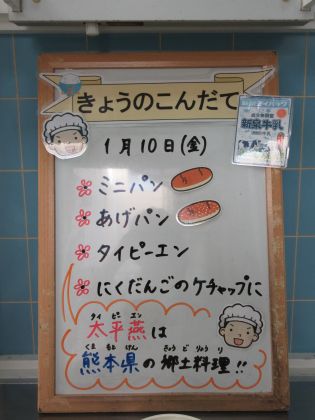 きょうのこんだて
1月10日(金)
ミニパン
あげパン
タイピーエン
にくだんごのケチャップに
タイ ピー エン
太平燕は
くま もと けん きょう ど りょう り
熊本県の郷土料理!!
牛乳